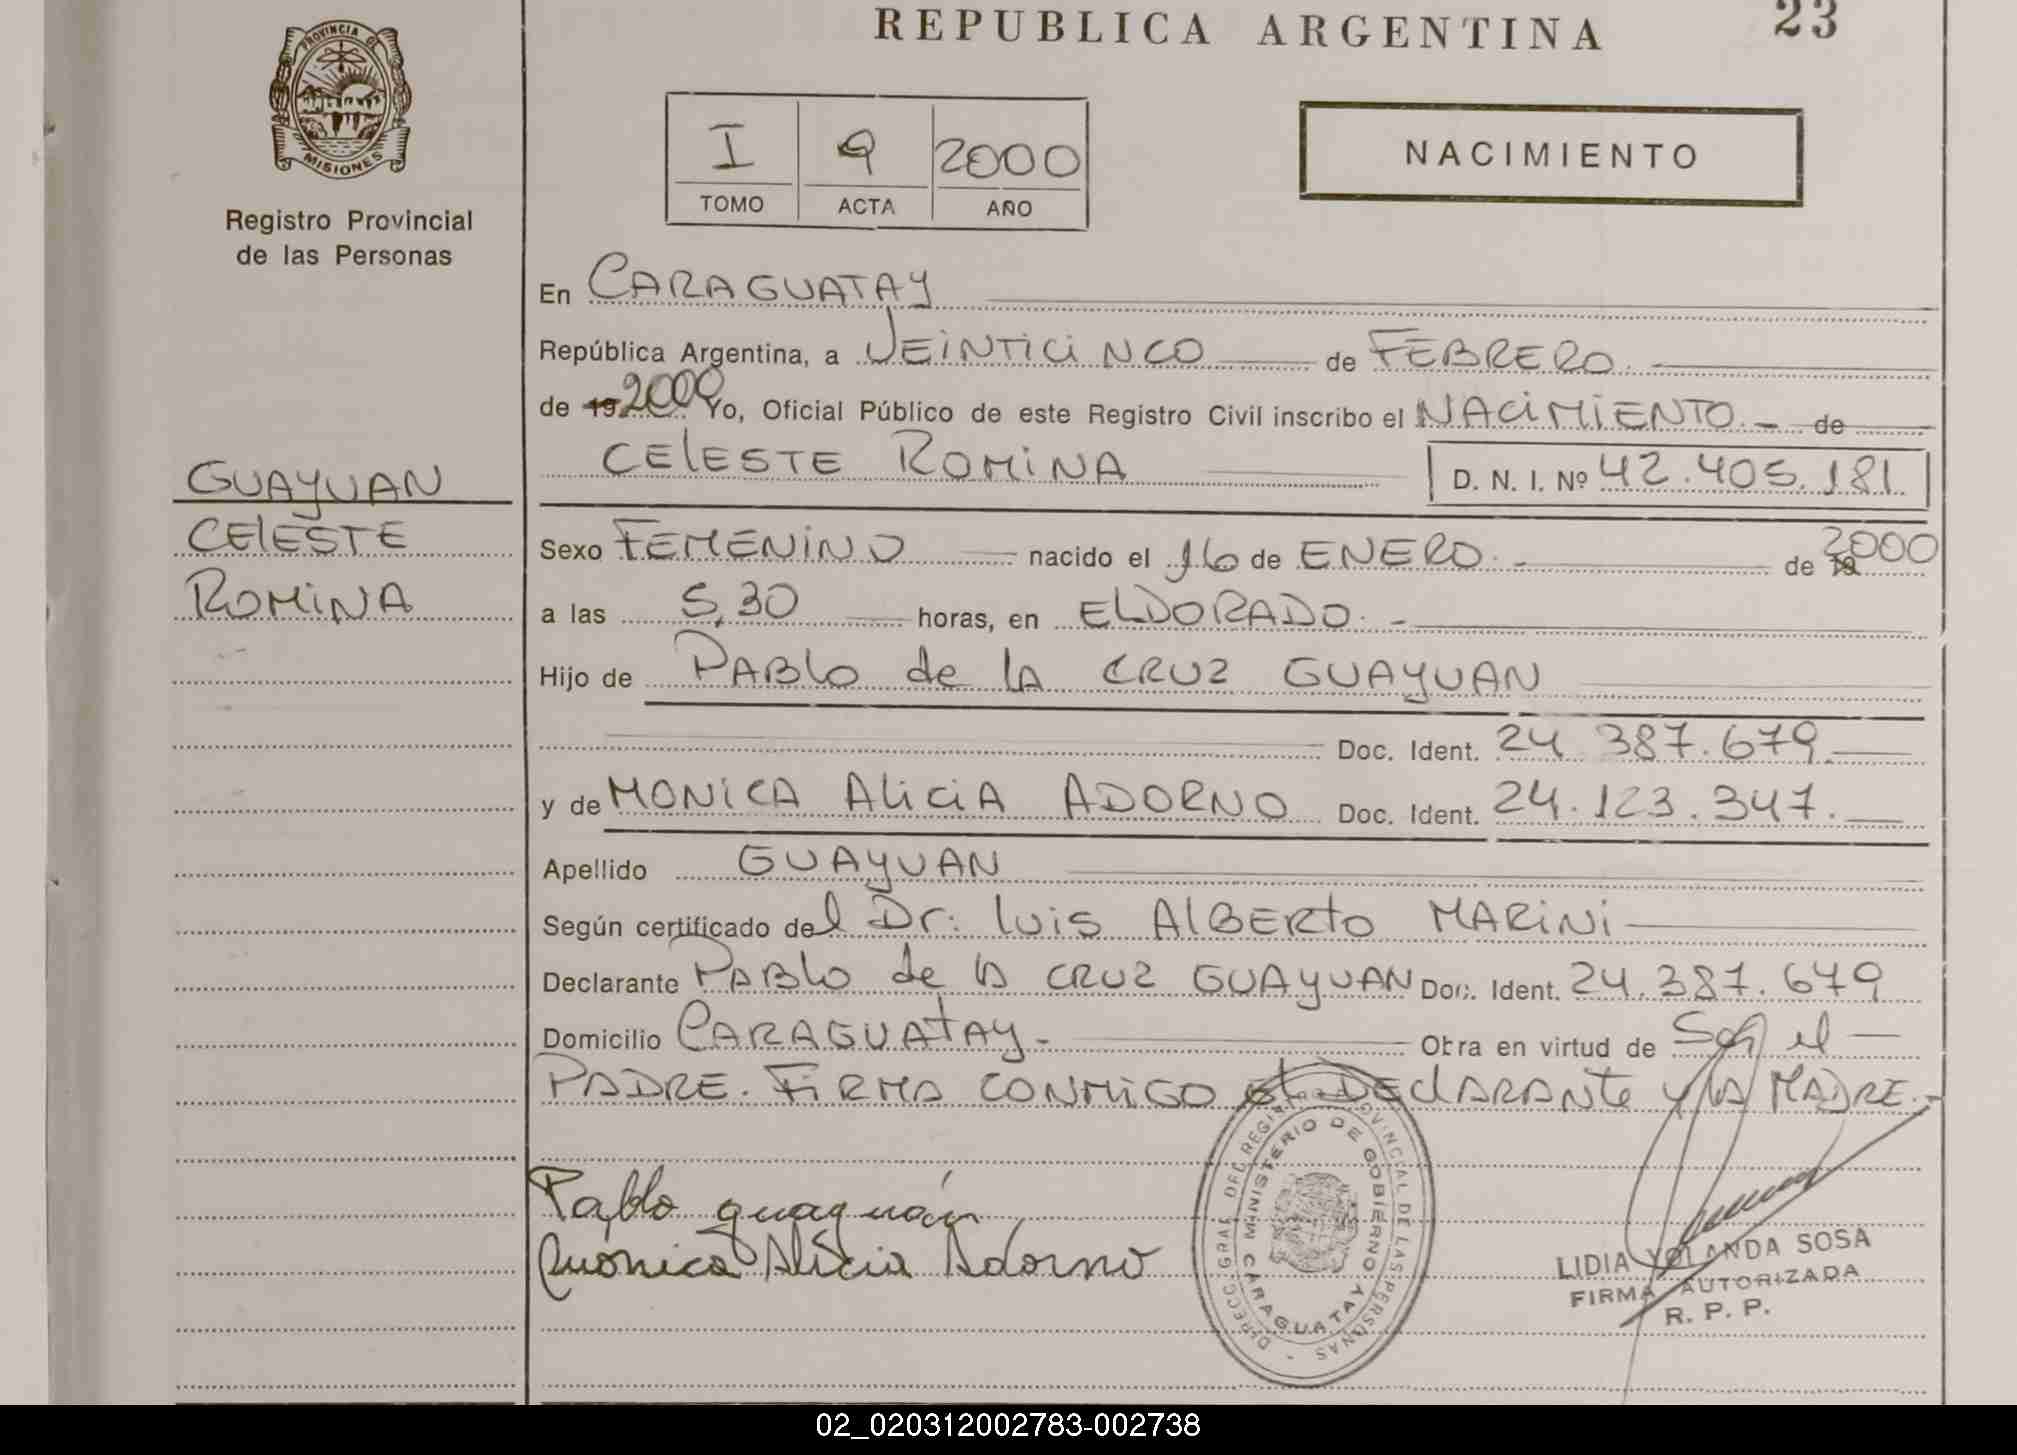 REPUBLICA ARGENTINA
23
PROVINCIA DE
MISIONES
Registro Provincial
de las Personas
I 9 2000
TOMO ACTA AÑO
NACIMIENTO
En CARAGUATAY
República Argentina, a VEINTICINCO de FEBRERO.
de 19 2000 Yo, Oficial Público de este Registro Civil inscribo el NACIMIENTO.- de
CELESTE ROMINA
D. N. I. Nº 42.405.181.
GUAYUAN
CELESTE
ROMINA
Sexo FEMENINO nacido el 16 de ENERO.- de 19 2000
a las 5,30 horas, en ELDORADO.-
Hijo de PABLO de LA CRUZ GUAYUAN
Doc. Ident. 24.387.679.
y de MONICA ALICIA ADORNO Doc. Ident. 24.123.347.
Apellido GUAYUAN
Según certificado del Dr: LUIS ALBERTO MARINI
Declarante PABLO de LA CRUZ GUAYUAN Doc. Ident. 24.387.679
Domicilio CARAGUATAY.- Obra en virtud de Ser el
PADRE. FIRMA CONMIGO el DECLARANTE y LA MADRE.-
Pablo guayuán
Mónica Alicia Adorno
DIRECC. GRAL. DEL REGISTRO PROVINCIAL DE LAS PERSONAS -
MINISTERIO DE GOBIERNO
CARAGUATAY
LIDIA YOLANDA SOSA
FIRMA AUTORIZADA
R. P. P.
02_020312002783-002738